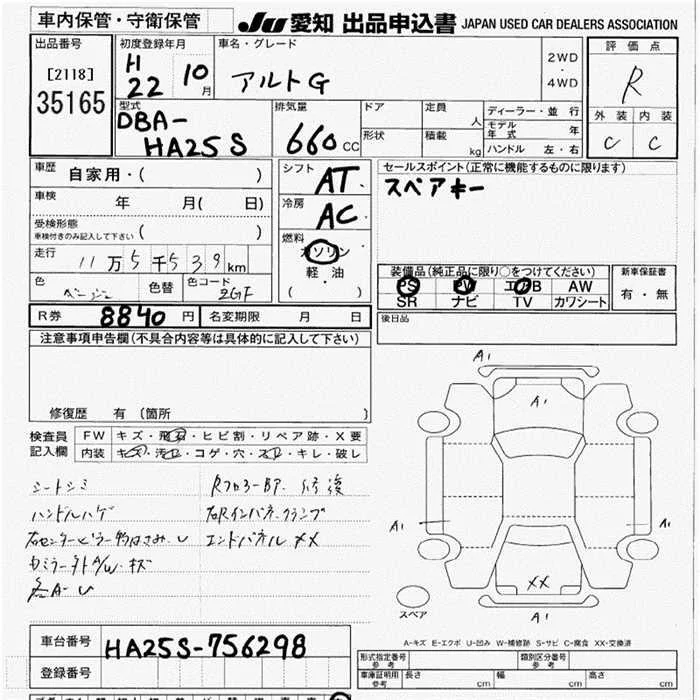 車内保管・守衛保管
JU 愛知 出品申込書 JAPAN USED CAR DEALERS ASSOCIATION
出品番号
[2118]
35165
初度登録年月
H
22 10月
車名・グレード
アルトG
2WD
・
4WD
評価点
R
外装 内装
C C
型式
DBA-
HA25S
排気量
660 CC
ドア
形状
定員 人
積載 kg
ディーラー・並行
モデル年式 年
ハンドル 左・右
車歴 自家用・( )
車検 年 月( 日)
受検形態
車検付きのみ記入して下さい ( )
走行 11万5千539km
色 ベージュ 色替 色コード ZGF
シフト AT
冷房 AC
燃料
ガソリン
軽・油
( ・ )
セールスポイント(正常に機能するものに限ります)
スペアキー
装備品(純正品に限り○をつけてください)
PS PW エアB AW
SR ナビ TV カワシート
新車保証書
有・無
R券 8840円 名変期限 月 日
後日品
注意事項申告欄(不具合内容等は具体的に記入して下さい)
修復歴 有(箇所 )
検査員
記入欄
FW キズ・飛石・ヒビ割・リペア跡・X要
内装 キズ・汚レ・コゲ・穴・スレ・キレ・破レ
シートシミ
ハンドルハゲ
RフロアーBP、修復
右Rインパネクランプ
エンドパネルXX
各A-U
A1
A1
A1
A1
XX
A1
スペア
A-キズ E-エクボ U-凹み W-補修跡 S-サビ C-腐食 XX-交換済
車台番号 HA25S-756298
登録番号
形式指定番号
参考
類別区分番号
参考
車庫証明用
参考
長さ cm 幅 cm 高さ cm